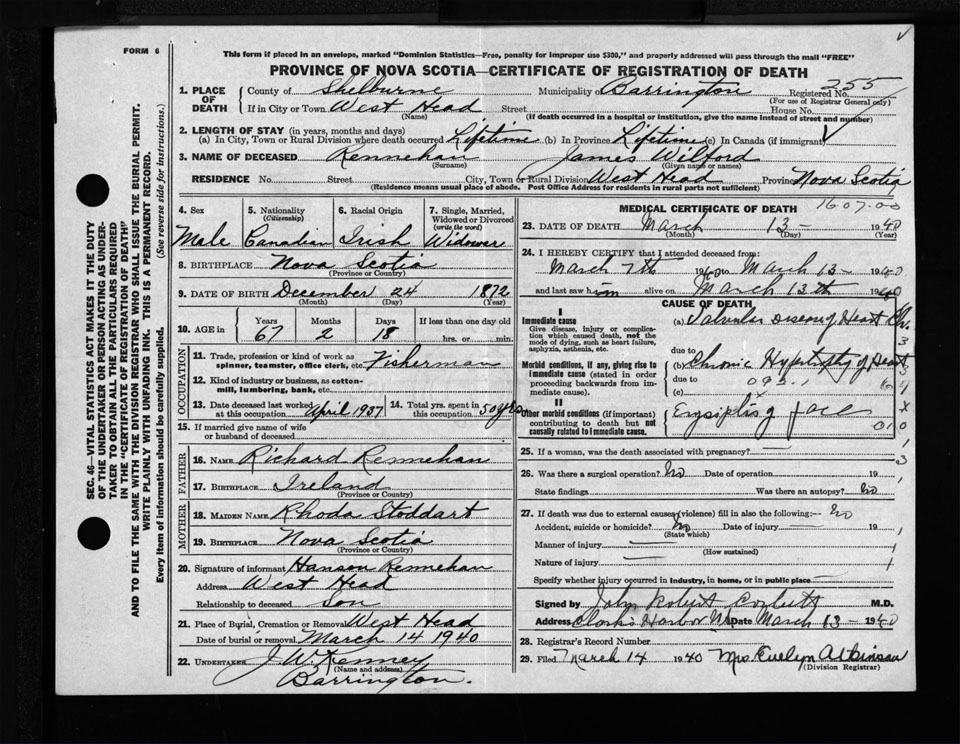 FORM 6
This form if placed in an envelope, marked "Dominion Statistics—Free, penalty for improper use $300," and properly addressed will pass through the mail "FREE"
PROVINCE OF NOVA SCOTIA—CERTIFICATE OF REGISTRATION OF DEATH
SEC. 46—VITAL STATISTICS ACT MAKES IT THE DUTY
OF THE UNDERTAKER OR PERSON ACTING AS UNDER-
TAKER TO OBTAIN ALL THE PARTICULARS REQUIRED
IN THE "CERTIFICATE OF REGISTRATION OF DEATH"
AND TO FILE THE SAME WITH THE DIVISION REGISTRAR WHO SHALL ISSUE THE BURIAL PERMIT.
WRITE PLAINLY WITH UNFADING INK. THIS IS A PERMANENT RECORD.
Every item of information should be carefully supplied. (See reverse side for instructions.)
1. PLACE OF DEATH County of Shelburne Municipality of Barrington Registered No. 255
(For use of Registrar General only)
If in City or Town West Head Street House No.
(Name) (if death occurred in a hospital or institution, give the name instead of street and number)
2. LENGTH OF STAY (in years, months and days)
(a) In City, Town or Rural Division where death occurred Lifetime (b) In Province Lifetime (c) In Canada (if immigrant) ✓
3. NAME OF DECEASED Rennehan James Wilford
(Surname) (Given name or names)
RESIDENCE No. Street City, Town or Rural Division West Head Province Nova Scotia
(Residence means usual place of abode. Post Office Address for residents in rural parts not sufficient)
4. Sex Male
5. Nationality (Citizenship) Canadian
6. Racial Origin Irish
7. Single, Married, Widowed or Divorced (write the word) Widower
8. BIRTHPLACE Nova Scotia
(Province or Country)
9. DATE OF BIRTH December 24 1872
(Month) (Day) (Year)
10. AGE in Years 67 Months 2 Days 18 If less than one day old hrs. or min.
OCCUPATION
11. Trade, profession or kind of work as spinner, teamster, office clerk, etc. Fisherman
12. Kind of industry or business, as cotton-mill, lumbering, bank, etc.
13. Date deceased last worked at this occupation April 1937
14. Total yrs. spent in this occupation 50 yrs
15. If married give name of wife or husband of deceased
FATHER
16. NAME Richard Rennehan
17. BIRTHPLACE Ireland
(Province or Country)
MOTHER
18. MAIDEN NAME Rhoda Stoddart
19. BIRTHPLACE Nova Scotia
(Province or Country)
20. Signature of informant Hanson Rennehan
Address West Head
Relationship to deceased Son
21. Place of Burial, Cremation or Removal West Head
Date of burial or removal March 14 1940
22. UNDERTAKER J W. Kenney
(Name and address)
Barrington.
MEDICAL CERTIFICATE OF DEATH 1607.00
23. DATE OF DEATH March 13 - 1940
(Month) (Day) (Year)
24. I HEREBY CERTIFY that I attended deceased from:
March 7th 1940 to March 13 - 1940
and last saw him alive on March 13th 1940
CAUSE OF DEATH
I
Immediate cause
Give disease, injury or complication which caused death, not the mode of dying, such as heart failure, asphyxia, asthenia, etc.
(a) Valvular Disease of Heart
due to
Morbid conditions, if any, giving rise to immediate cause (stated in order proceeding backwards from immediate cause).
(b) Chronic Hypertrophy of Heart
due to
(c)
II
Other morbid conditions (if important) contributing to death but not causally related to immediate cause.
Erysiplis of face
25. If a woman, was the death associated with pregnancy? —
26. Was there a surgical operation? No Date of operation 19
State findings Was there an autopsy? No
27. If death was due to external causes (violence) fill in also the following:— No
Accident, suicide or homicide? No Date of injury — 19
(State which)
Manner of injury —
(How sustained)
Nature of injury —
Specify whether injury occurred in industry, in home, or in public place —
Signed by John Robert Corbett M.D.
Address Clark's Harbor NS Date March 13 - 1940
28. Registrar's Record Number
29. Filed March 14 1940 Mrs. Evelyn Atkinson
(Division Registrar)